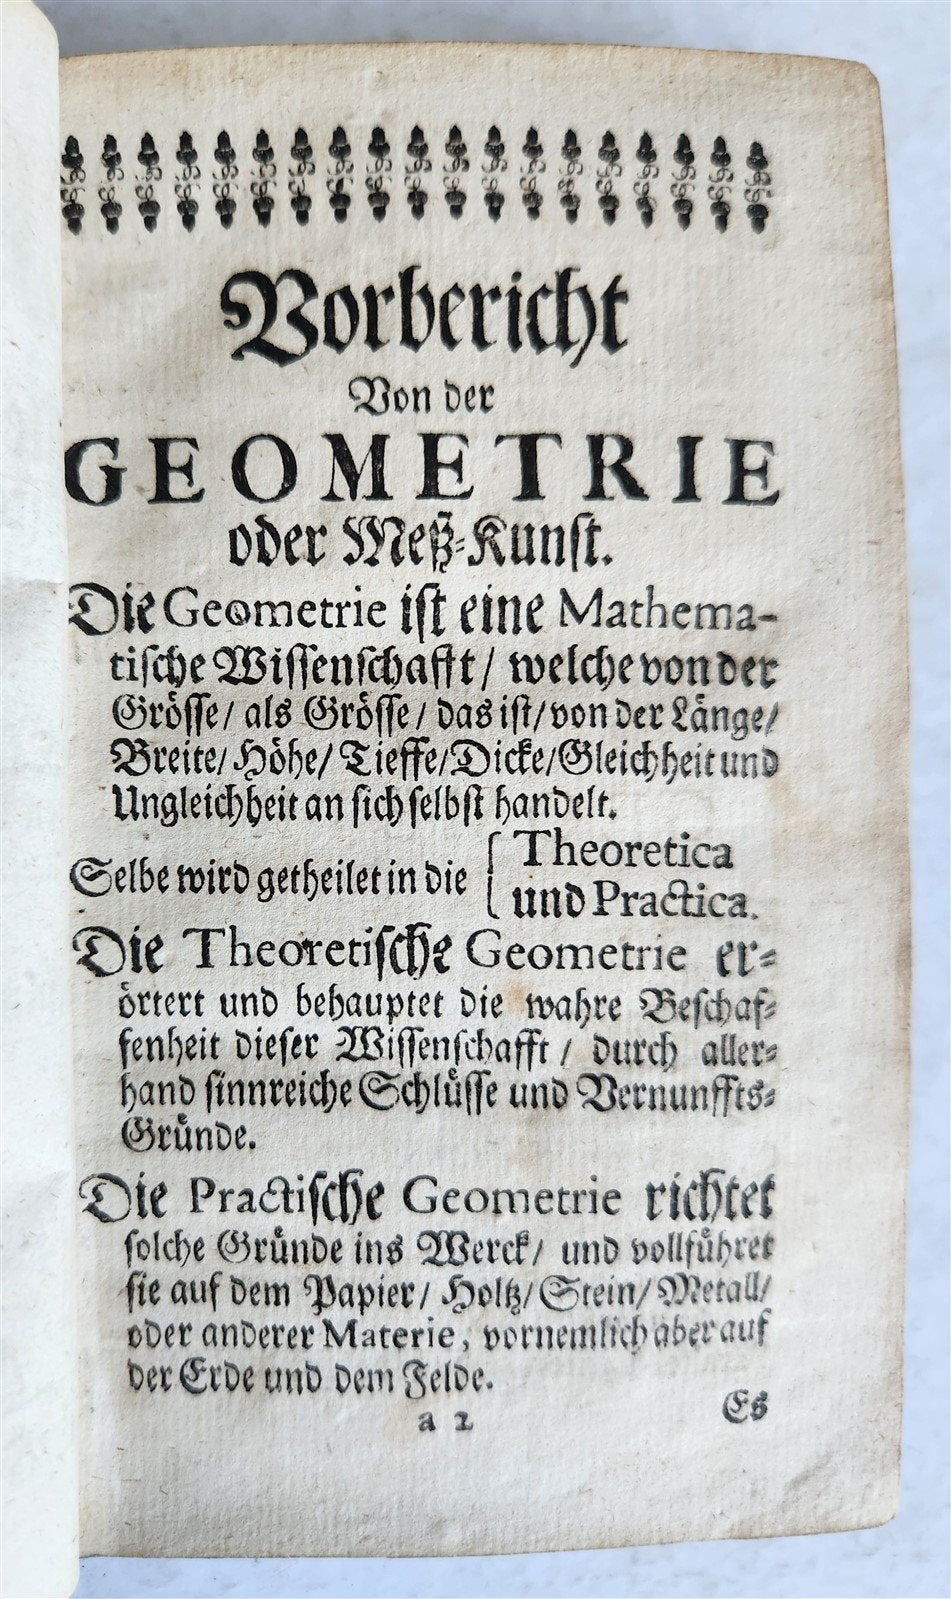 Vorbericht
Von der
GEOMETRIE
oder Meß-Kunst.
Die Geometrie ist eine Mathema-
tische Wissenschafft / welche von der
Grösse / als Grösse / das ist / von der Länge /
Breite / Höhe / Tieffe / Dicke / Gleichheit und
Ungleichheit an sich selbst handelt.
Selbe wird getheilet in die { Theoretica
und Practica.
Die Theoretische Geometrie er-
örtert und behauptet die wahre Beschaf-
fenheit dieser Wissenschafft / durch aller-
hand sinnreiche Schlüsse und Vernunffts-
Gründe.
Die Practische Geometrie richtet
solche Gründe ins Werck / und vollführet
sie auf dem Papier / Holtz / Stein / Metall /
oder anderer Materie, vornemlich aber auf
der Erde und dem Felde.
a 2
Es